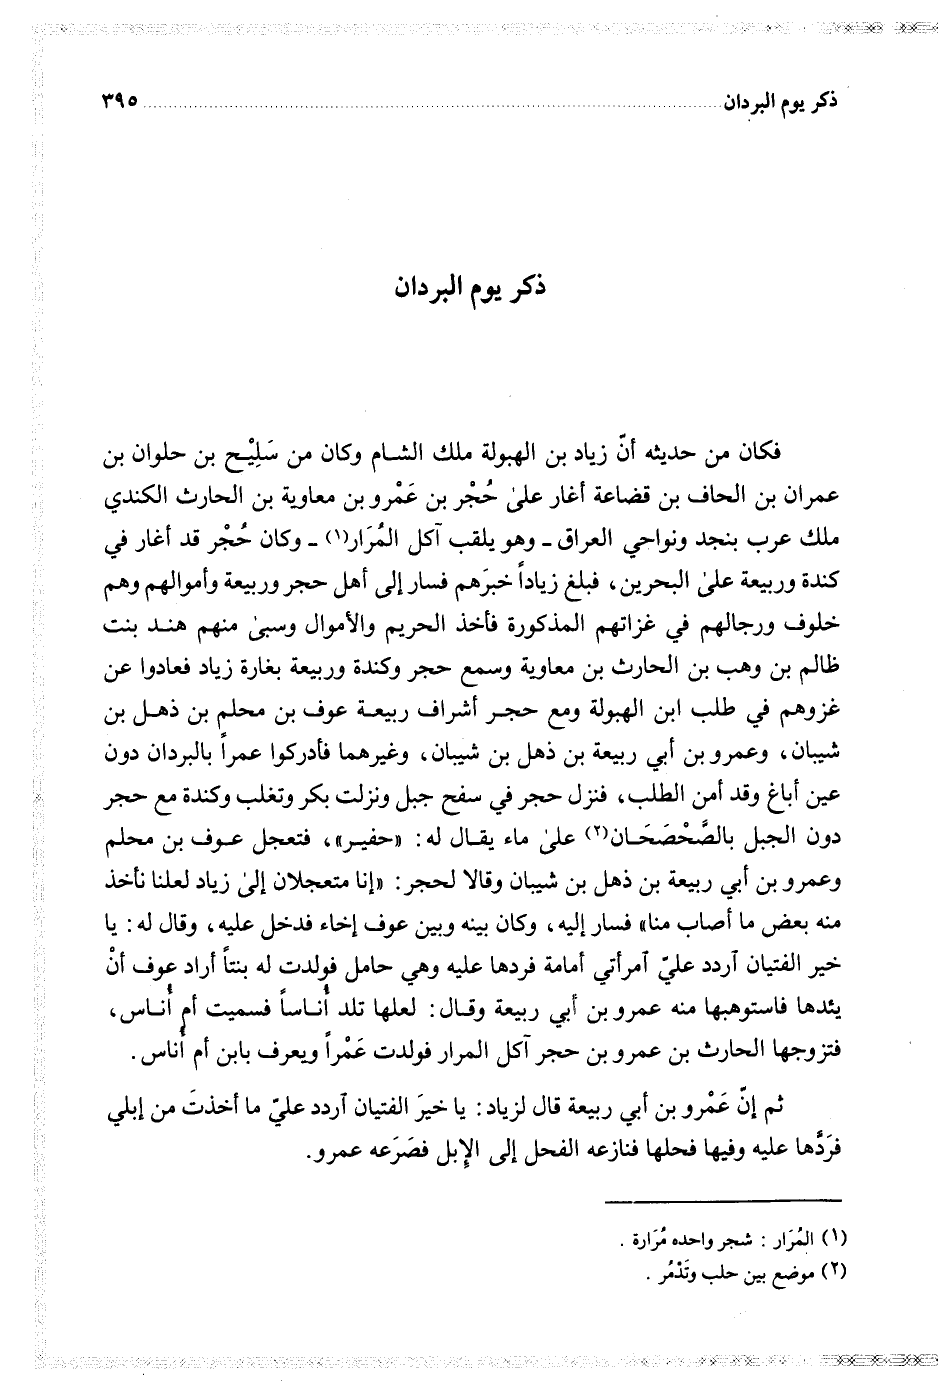 ذكر يوم البردان ........................................ ٣٩٥
ذكر يوم البردان
فكان من حديثه أنّ زياد بن الهبولة ملك الشام وكان من سَلِيْح بن حلوان بن
عمران بن الحاف بن قضاعة أغار علىٰ حُجْر بن عَمْرو بن معاوية بن الحارث الكندي
ملك عرب بنجد ونواحي العراق ـ وهو يلقب آكل المُرَار(١) ـ وكان حُجْر قد أغار في
كندة وربيعة علىٰ البحرين، فبلغ زياداً خبرَهم فسار إلى أهل حجر وربيعة وأموالهم وهم
خلوف ورجالهم في غزاتهم المذكورة فأخذ الحريم والأموال وسبىٰ منهم هند بنت
ظالم بن وهب بن الحارث بن معاوية وسمع حجر وكندة وربيعة بغارة زياد فعادوا عن
غزوهم في طلب ابن الهبولة ومع حجر أشراف ربيعة عوف بن محلم بن ذهل بن
شيبان، وعمرو بن أبي ربيعة بن ذهل بن شيبان، وغيرهما فأدركوا عمراً بالبردان دون
عين أباغ وقد أمن الطلب، فنزل حجر في سفح جبل ونزلت بكر وتغلب وكندة مع حجر
دون الجبل بالصَّحْصَحَان(٢) علىٰ ماء يقال له: «حفير»، فتعجل عوف بن محلم
وعمرو بن أبي ربيعة بن ذهل بن شيبان وقالا لحجر: «إنا متعجلان إلىٰ زياد لعلنا نأخذ
منه بعض ما أصاب منا» فسار إليه، وكان بينه وبين عوف إخاء فدخل عليه، وقال له: يا
خير الفتيان آردد عليّ آمرأتي أمامة فردها عليه وهي حامل فولدت له بنتاً أراد عوف أنْ
يئدها فاستوهبها منه عمرو بن أبي ربيعة وقال: لعلها تلد أُناساً فسميت أم أُناس،
فتزوجها الحارث بن عمرو بن حجر آكل المرار فولدت عَمْراً ويعرف بابن أم أُناس.
ثم إنّ عَمْرو بن أبي ربيعة قال لزياد: يا خيرَ الفتيان آردد عليّ ما أخذتَ من إبلي
فرَدَّها عليه وفيها فحلها فنازعه الفحل إلى الإبل فصَرَعه عمرو.
(١) المُرَار : شجر واحده مُرَارة .
(٢) موضع بين حلب وتَدْمُر .